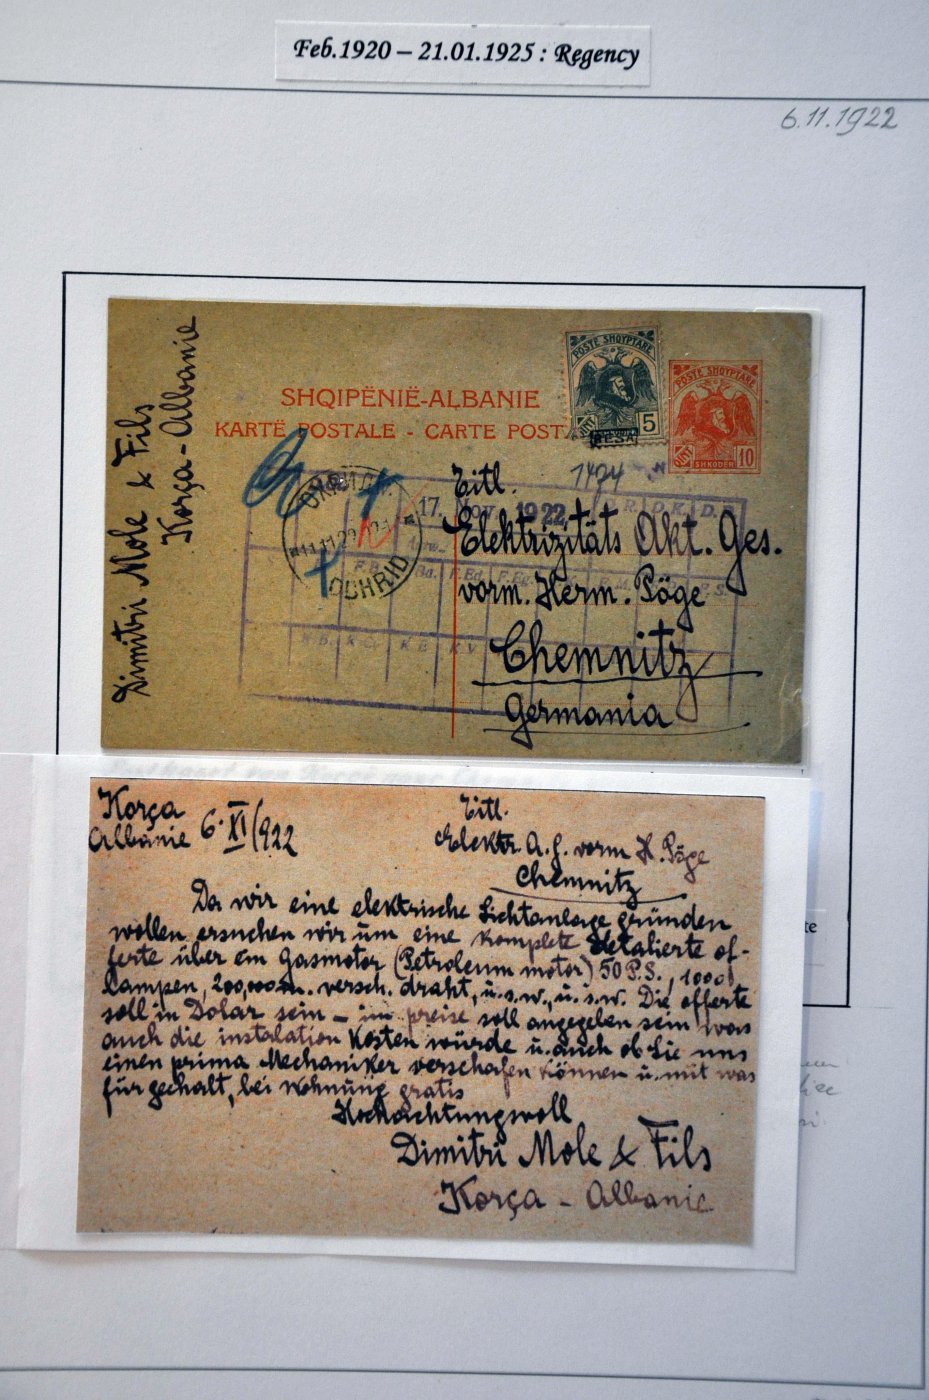 Feb.1920 – 21.01.1925 : Regency
6.11.1922
SHQIPËNIË-ALBANIE
KARTË POSTALE - CARTE POSTA
POSTE SHQYPTARE
5
QINT
BESA
POSTE SHQYPTARE
QINT
10
SHKODER
Dimitri Mole & Fils
Korça - Albanie
OHRID
17. Nov. 1922
Titl.
Elektrizitäts Akt. Ges.
vorm. Herm. Pöge
Chemnitz
Germania
Korça
Albanie 6. XI/922
Titl.
Elektr. A.G. vorm H. Pöge
Chemnitz
Da wir eine elektrische Lichtanlage gründen
wollen ersuchen wir um eine komplete detalierte of-
ferte über em Gasmotor (Petroleum motor) 50 P.S., 1000
Lampen, 200,000 m. versch. draht, u.s.w., u.s.w. Die offerte
soll in Dolar sein – im preise soll angegeben sein was
auch die instalation kosten würde u. auch ob Sie uns
einen prima Mechaniker verschafen können u. mit was
für gechalt, bei wohnung gratis
Hochachtungsvoll
Dimitri Mole & Fils
Korça - Albanie
te